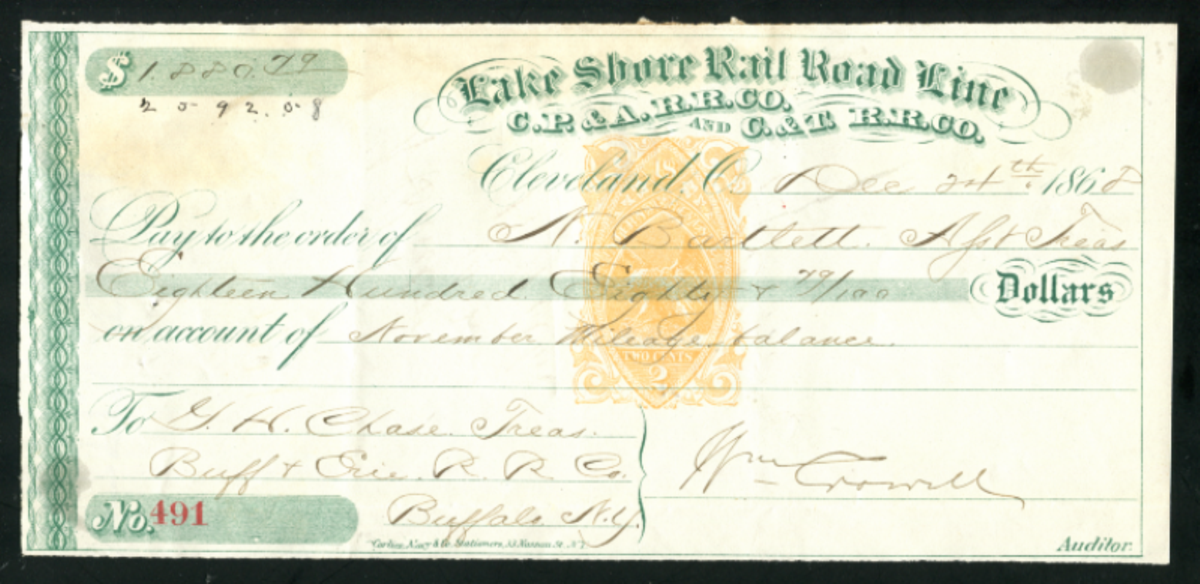 $ 1.880.79
2092.08
Lake Shore Rail Road Line
C.P. & A. R.R. CO. AND C. & T. R.R. CO.
Cleveland O Dec 24th. 1868
Pay to the order of N. Bartlett. Asst Treas
Eighteen Hundred Eighty & 79/100 Dollars
on account of November Mileage balance.
TWO CENTS
2
To G. H. Chase. Treas.
Buff & Erie. R. R. Co.
Buffalo N.Y.
Wm Crowell
No. 491
Stationers, Nassau St. N.Y.
Auditor.